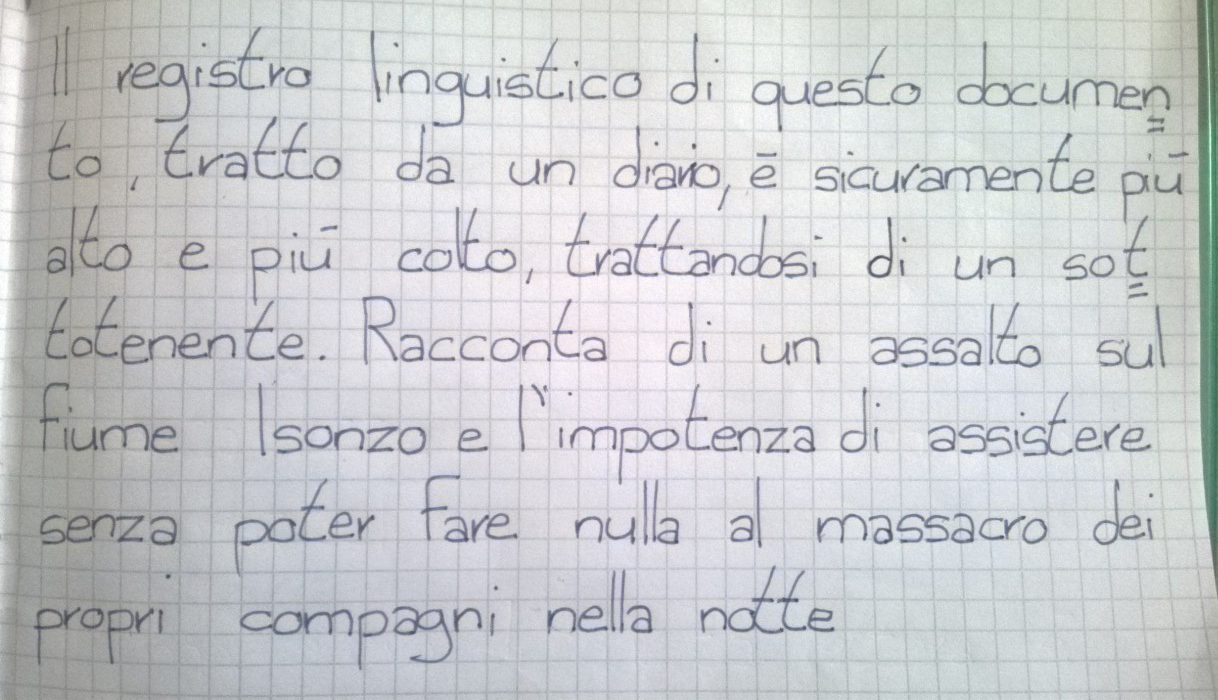 Il registro linguistico di questo documen=
to, tratto da un diario, è sicuramente più
alto e più colto, trattandosi di un sot=
totenente. Racconta di un assalto sul
fiume Isonzo e l'impotenza di assistere
senza poter fare nulla al massacro dei
propri compagni nella notte